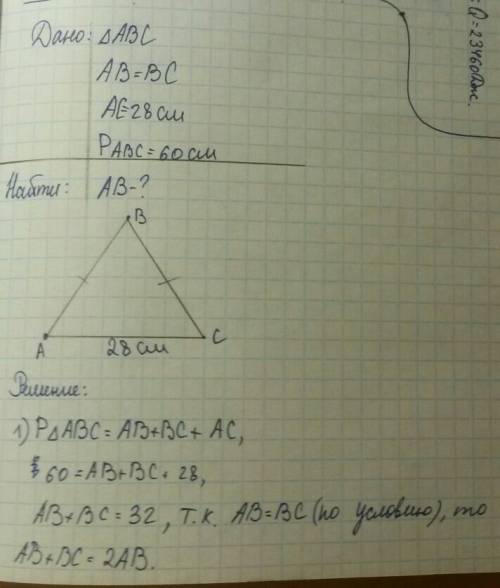 Дано: △ABC
AB=BC
AC=28см
PABC=60см
Найти: AB-?
B
A
28 см
C
Решение:
1) P△ABC=AB+BC+AC,
60=AB+BC+28,
AB+BC=32, т.к. AB=BC (по условию), то
AB+BC=2AB.
Q=23460Дж.